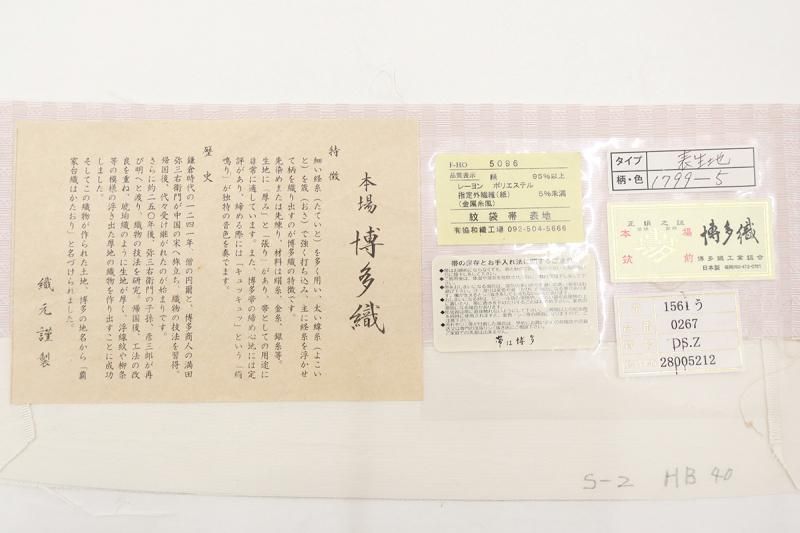 本場 博多織
特徴
細い経糸(たていと)を多く用い、太い緯糸(よこい
と)を筬(おさ)で強く打ち込み、主に経糸を浮かせ
て柄を織り出すのが博多織の特徴です。
先染めまたは先練り、材料は絹糸、金糸、銀糸等。
生地に「厚み」と「張り」があり、帯としての用途に
非常に適しています。また、博多帯の締め心地には定
評があり、締める際には「キュッキュッ」という「絹
鳴り」が独特の音色を奏でます。
歴史
鎌倉時代の一二四一年、僧の円爾と、博多商人の満田
弥三右衛門が中国の宋へ旅立ち、織物の技法を習得。
帰国後、代々受け継がれたのが始まりです。
さらに約二五〇年後、弥三右衛門の子孫、彦三郎が再
び明へと渡り、織物の技法を研究。帰国後、工法の改
良を重ね、琥珀織のように生地が厚く、浮線紋や柳条
等の模様の浮き出た厚地の織物を作り出すことに成功
しました。
そしてこの織物が作られた土地、博多の地名から「覇
家台織はかたおり」と名づけられました。
織元謹製
F-HO 5096
品質表示 絹 95%以上
レーヨン ポリエステル
指定外繊維(紙) 5%未満
(金属糸風)
紋袋帯 表地
有協和織工場 092-504-5666
帯の保存とお手入れ法に関するご注意
帯は博多
タイプ 表生地
柄・色 1799-5
正絹之証
本場
筑前
博多織
博多織工業組合
日本製
1561う
0267
DS.Z
28005212
S-2 HB 40